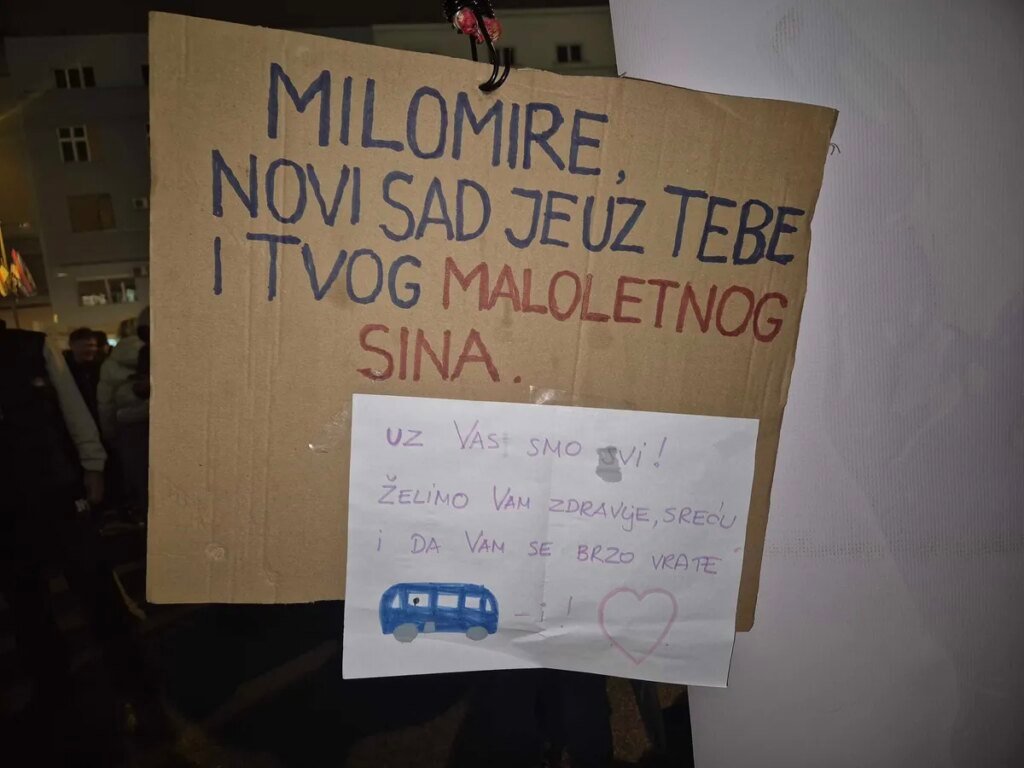 MILOMIRE,
NOVI SAD JE UZ TEBE
I TVOG MALOLETNOG
SINA.
UZ VAS SMO SVI!
ŽELIMO VAM ZDRAVJE, SREĆU
i DA VAM SE BRZO VRATE